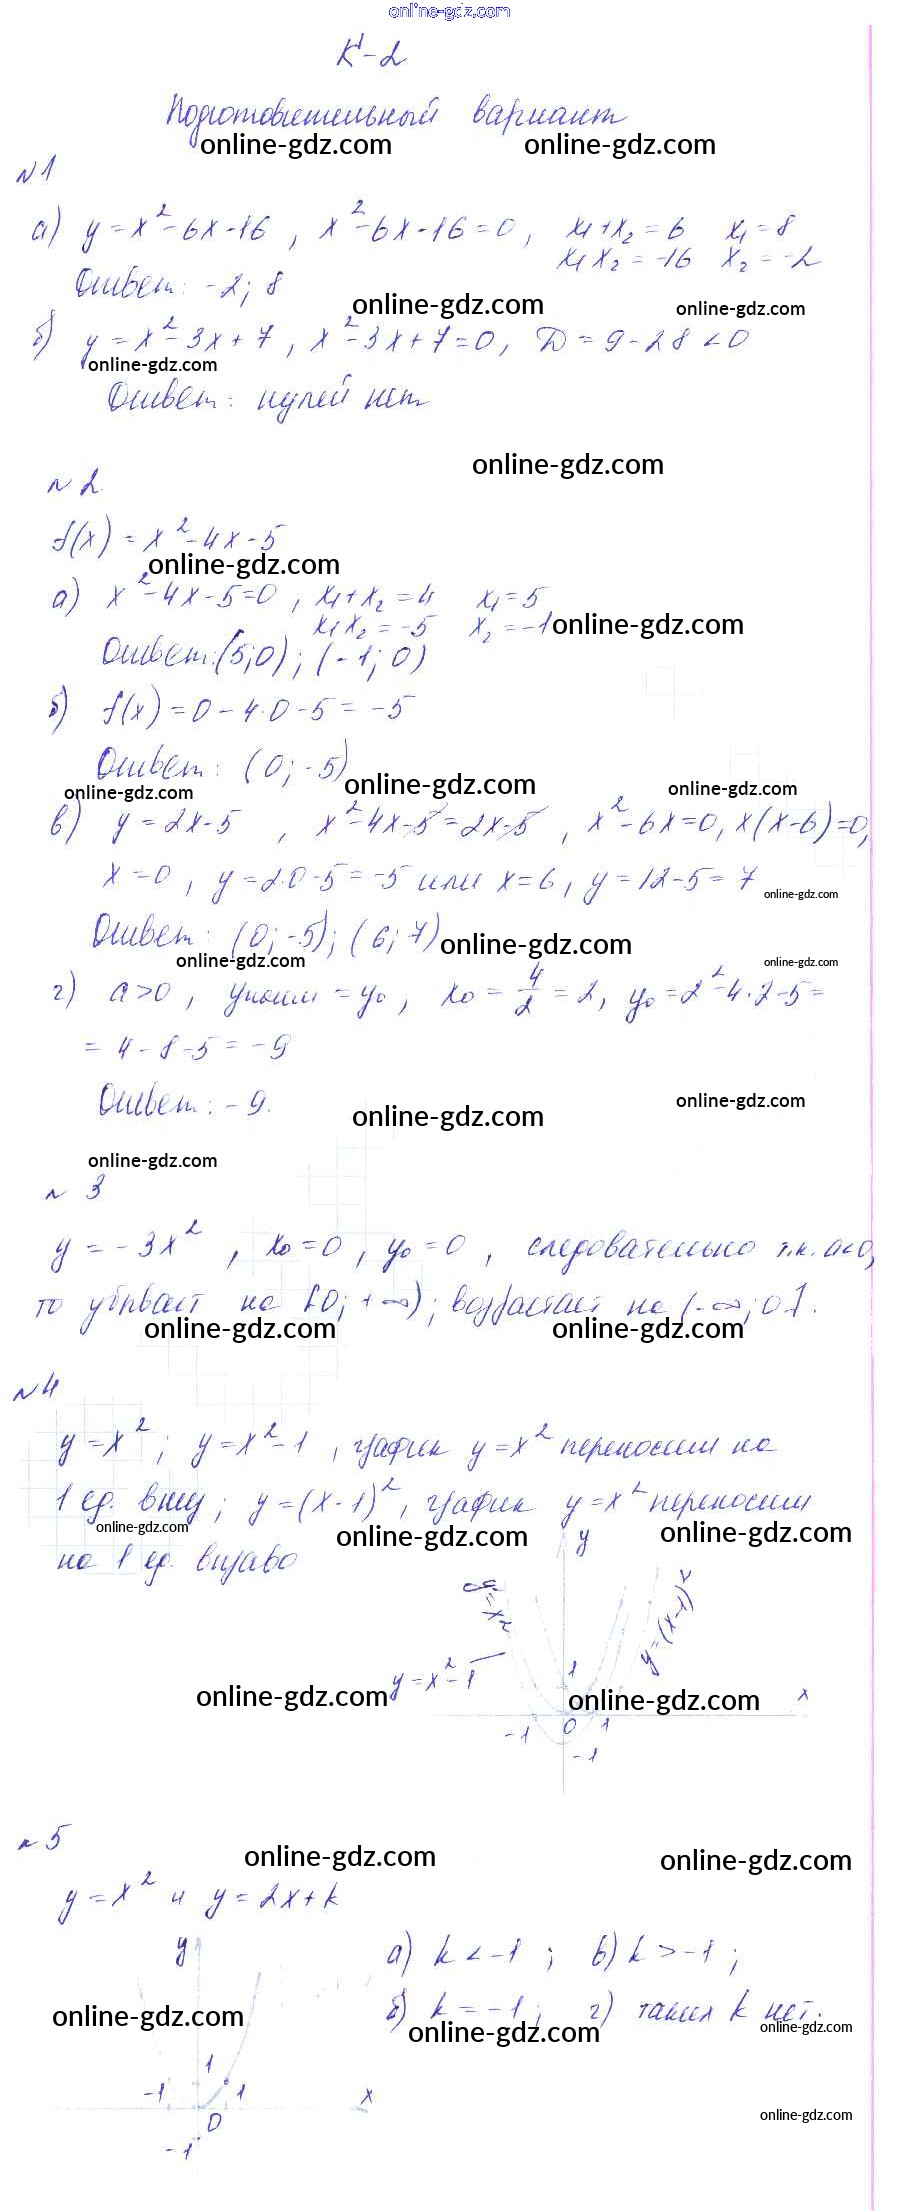 online-gdz.com
К-2
Подготовительный вариант
online-gdz.com online-gdz.com
№1
а) y = x² - 6x - 16 , x² - 6x - 16 = 0 , x₁ + x₂ = 6 x₁ = 8
x₁ x₂ = -16 x₂ = -2
Ответ: -2; 8
online-gdz.com online-gdz.com
б) y = x² - 3x + 7 , x² - 3x + 7 = 0 , D = 9 - 28 < 0
online-gdz.com
Ответ: нулей нет
online-gdz.com
№2
f(x) = x² - 4x - 5
online-gdz.com
а) x² - 4x - 5 = 0 , x₁ + x₂ = 4 x₁ = 5
x₁ x₂ = -5 x₂ = -1
online-gdz.com
Ответ: (5; 0) ; (-1; 0)
б) f(x) = 0 - 4·0 - 5 = -5
Ответ: (0; -5)
online-gdz.com online-gdz.com online-gdz.com
в) y = 2x - 5 , x² - 4x - 5 = 2x - 5 , x² - 6x = 0, x(x - 6) = 0,
x = 0 , y = 2·0 - 5 = -5 или x = 6 , y = 12 - 5 = 7
online-gdz.com
Ответ: (0; -5) ; (6; 7)
online-gdz.com
online-gdz.com online-gdz.com
г) a > 0 , yнаим = y₀ , x₀ = 4/2 = 2, y₀ = 2² - 4·2 - 5 =
= 4 - 8 - 5 = -9
Ответ: -9.
online-gdz.com online-gdz.com
online-gdz.com
№3
y = -3x² , x₀ = 0 , y₀ = 0 , следовательно т.к. a<0,
то убывает на [0; +∞) ; возрастает на (-∞; 0].
online-gdz.com online-gdz.com
№4
y = x² ; y = x² - 1 , график y = x² переносим на
1 ед. вниз ; y = (x - 1)² , график y = x² переносим
online-gdz.com online-gdz.com online-gdz.com
на 1 ед. вправо
y
y = x²
y = (x-1)²
y = x² - 1
1
x
online-gdz.com online-gdz.com
-1 0 1
-1
№5
online-gdz.com online-gdz.com
y = x² и y = 2x + k
y
а) k < -1 ; в) k > -1 ;
б) k = -1 ; г) таких k нет.
online-gdz.com online-gdz.com online-gdz.com
1
-1 1 x
0
-1
online-gdz.com